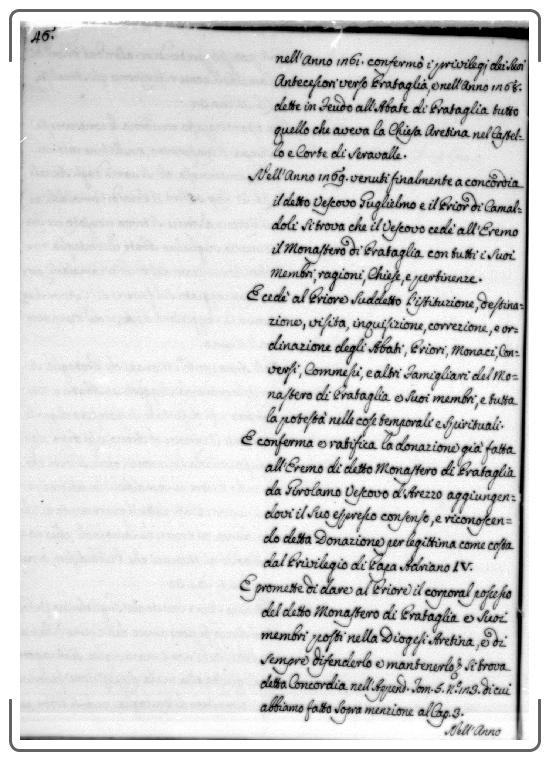 46.
nell'Anno 1161. confermò i privilegi dei Suoi
Antecessori verso Prataglia, e nell'Anno 1165.
dette in Feudo all'Abate di Prataglia tutto
quello che aveva la Chiesa Aretina nel Castel-
lo e Corte di Seravalle.
Nell'Anno 1169. venuti finalmente a concordia
il detto Vescovo Guglielmo e il Prior di Camal-
doli si trova che il Vescovo cedè all'Eremo
il Monastero di Prataglia con tutti i suoi
membri, ragioni, Chiese, e pertinenze.
E cedè al Priore Suddetto l'istituzione, destina-
zione, visita, inquisizione, correzione, e or-
dinazione degli Abati, Priori, Monaci, Con-
versi, Commessi, e altri Famigliari del Mo-
nastero di Prataglia e Suoi membri, e tutta
la potestà nelle cose temporali e Spirituali.
E conferma e ratifica la donazione già fatta
all'Eremo di detto Monastero di Prataglia
da Girolamo Vescovo d'Arezzo aggiungen-
dovi il Suo espresso consenso, e riconoscen-
do detta Donazione per legittima come costa
dal Privilegio di Papa Adriano IV.
E promette di dare al Priore il corporal possesso
del detto Monastero di Prataglia e Suoi
membri posti nella Diogesi Aretina, e di
sempre difenderlo e mantenerlo, Si trova
detta Concordia nell'Append. Tom. 5. N.º 113. di cui
abbiamo fatto Sopra menzione al Cap. 3.
Nell'Anno